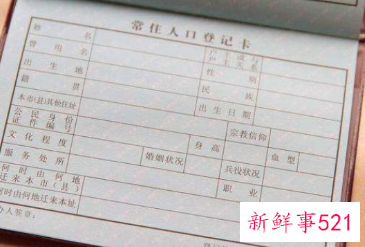 常住人口登记卡
姓名 户主或与户主关系
曾用名 性别
出生地 民族
籍贯 出生日期
本市(县)其他住址 宗教信仰
公民身份证件编号 身高 血型
文化程度 婚姻状况 兵役状况
服务处所 职业
何时由何地迁来本市(县)
何时由何地迁来本址
办人签章:
新鲜事521